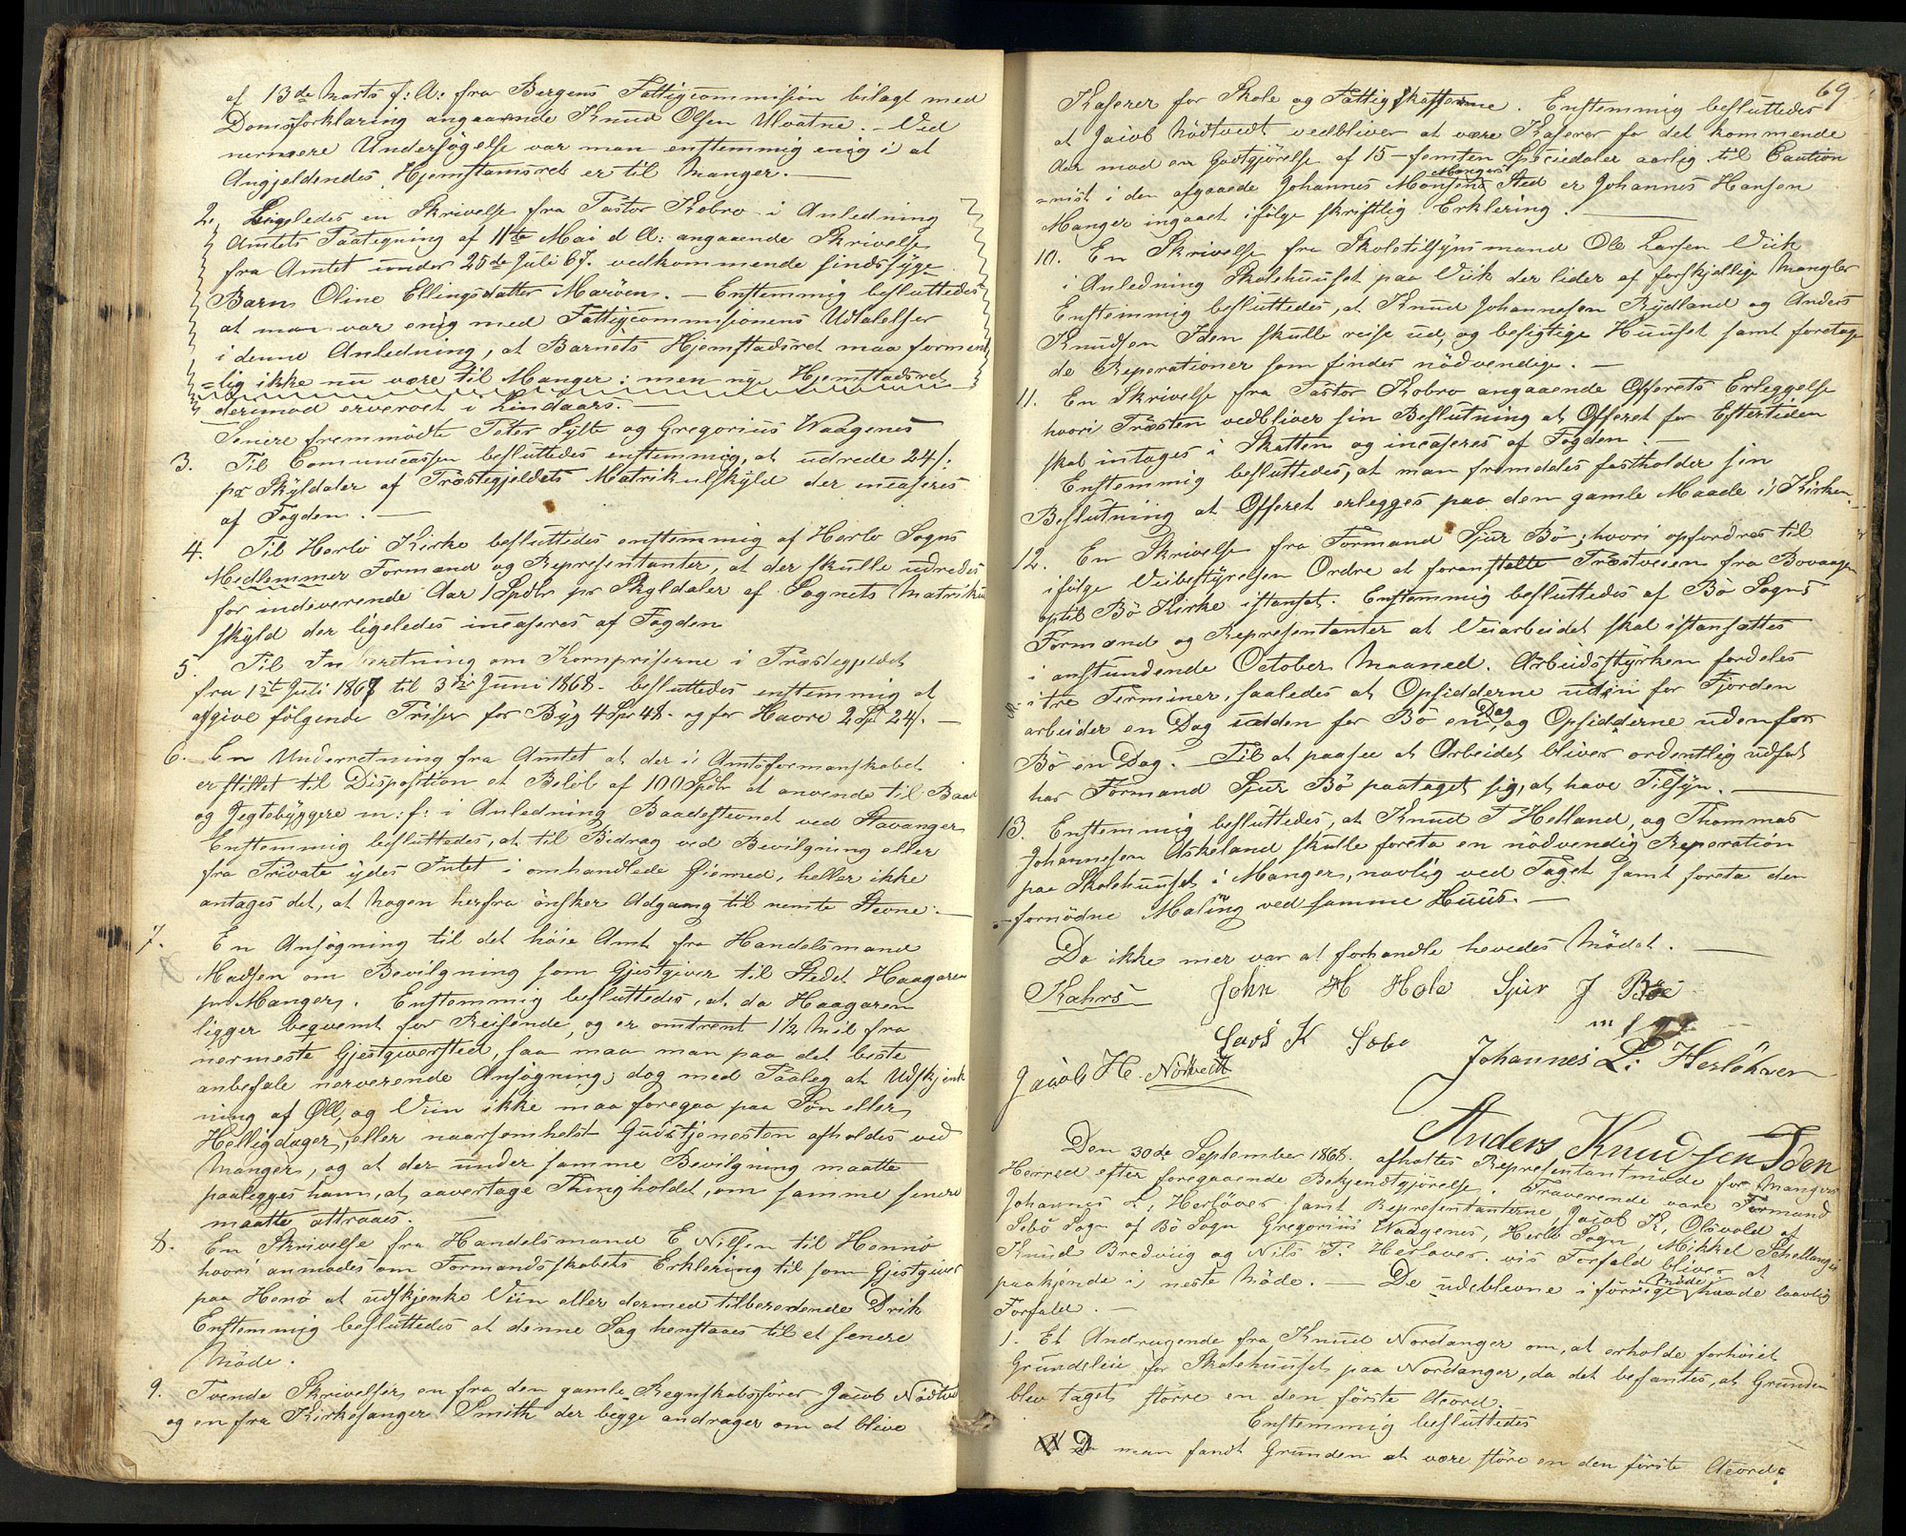 af 13de Marts f: A: fra Bergens Fattigcommision bilagt med
Domsforklaring angaaende Knud Olsen Ulvatne. – Ved
nermere Undersøgelse var man enstemmig enig i at
Angjeldendes Hjemstamsret er til Manger. —
2. Ligeledes en Skrivelse fra Pastor Kobro i Anledning
Amtets Paategning af 11te Mai d A: angaaende Skrivelse
fra Amtet under 25de Juli 67. vedkommende sindssyge
Barn Oline Ellingsdatter Marøen. – Enstemmig besluttedes
at man var enig med Fattigcommisionens Udtalelser
i denne Anledning, at Barnets Hjemstadsret maa forment
=lig ikke nu være til Manger: men nye Hjemstadsret
derimod ervervet i Lindaas. —
Senere fremmødte Peter Sylte og Gregorius Waagenes
3. Til Comunecassen besluttedes enstemmig, at udrede 24 s:
pr Skyldaler af Præstegjeldets Matrikulskyld der incaseres
af Fogden. —
4. Til Herlø Kirke besluttedes enstemmig af Herlø Sogns
Medlemmer Formænd og Representanter, at der skulle udredes
for indeverende Aar 1 Spdlr pr Skyldaler af Sognets Matrikul
skyld der ligeledes incaseres af Fogden
5. Til Inberetning om Kornpriserne i Præstegjeldet
fra 1st Juli 1867 til 31te Juni 1868. besluttedes enstemmig at
afgive følgende Priser for Byg 4 Spr 48. og for Havre 2 Sp 24 s. —
6. En Underretning fra Amtet at der i Amtsformanskabet
er stillet til Disposition et Beløb af 100 Spdlr at anvende til Baad
og Jegtebyggere m: f: i Anledning Baadestevnet ved Stavanger
Enstemmig besluttedes, at til Bidrag ved Bevilgning eller
fra Private ydes Intet i omhandlede Øiemed, heller ikke
antages det, at Nogen herfra ønsker Adgang til nemte Stevne. —
7. En Ansøgning til det høie Amt fra Handelsmand
Madsen om Bevilgning som Gjestgiver til Stedet Haagaren
pr Manger. Enstemmig besluttedes, at da Haagaren
ligger beqvemt for Reisende, og er omtrent 1½ Mil fra
nermeste Gjestgiversted, saa maa man paa det beste
anbefale nerverende Ansøgning; dog med Paaleg at Udskjenk
ning af Øll, og Viin ikke maa foregaa paa Søn eller
Helligdager, eller naarsomhelst Gudstjenesten afholdes ved
Manger, og at der under samme Bevilgning maatte
paalegges ham, at aavertage Thingholdet, om samme senere
maatte attraaes. —
8. En Skrivelse fra Handelsmand E Nilsen til Hennø
hvori anmodes om Formandsskabets Erklering til som Gjestgiver
paa Henø at udskjenke Viin eller dermed tilberedende Drik
Enstemmig besluttedes at denne Sag henstaaes til et senere
Møde.
9. Tvende Skrivelser, en fra den gamle Regnskabsfører Jacob Nødtve
og en fra Kirkesanger Smith der begge andrager om at blive
69
Kaserer for Skole og Fattigkasserne. Enstemmig besluttedes
at Jacob Nødtvedt vedbliver at være Kaserer for det kommende
Aar mod en Godtgjørelse af 15 – femten Speciedaler aarlig til Caution
=nist i den afgaaede Johannes Monsens Mangers Sted er Johannes Hansen
Manger ingaaet ifølge skriftlig Erklering. —
10. En Skrivelse fra Skoletilsynsmand Ole Larsen Viik
i Anledning Skolehuuset paa Viik der lider af forskjellige Mangler
Enstemmig besluttedes, at Knud Johannesen Rydland og Anders
Knudsen Iden skulle reise ud, og besigtige Huuset samt foretage
de Reperationer som findes nødvendige. —
11. En Skrivelse fra Pastor Kobro angaaende Offerets Erleggelse
hvori Præsten vedbliver sin Beslutning at Offeret for Eftertiden
skal intages i Skatten og incaseres af Fogden. —
Enstemmig besluttedes, at man fremdeles fastholder sin
Beslutning at Offeret erlegges paa den gamle Maade i Kirken.
12. En Skrivelse fra Formand Sjur Bø, hvori opfordres til
ifølge Veibestyrelsen Ordre at foranstalte Præstveien fra Bovaagen
optil Bø Kirke istansat. Enstemmig besluttedes af Bø Sogns
Formænd og Representanter at Veiarbeidet skal istansættes
i anstundende October Maaned. Arbeidsstyrken fordeles
i tre Terminer, saaledes at Opsidderne uden for Fjorden
arbeider en Dag udden for Bø en Dag, og Opsidderne udenfor
Bø en Dag. – Til at paasee at Arbeidet bliver ordentlig udført
har Formand Sjur Bø paataget sig, at have Tilsyn. —
13. Enstemmig besluttedes, at Knud T Helland, og Thommas
Johannesen Askeland skulle foreta en nødvendig Reperation
paa Skolehuuset i Manger, navlig ved Taget samt foreta den
=fornødne Maling ved samme Huus. —
Da ikke mer var at forhandle hevedes Mødet. —
Kahrs John H Hole Sjur J Bøe
m f p
Lars K Sæbø
Jacob H. Nøtvedt Johannes L: Herløkver
Anders Knudsen Iden
Den 30de September 1868. afholtes Representantmøde for Mangers
Herred efter foregaaende Bekjendtgjørelse. Fraverende vare Formand
Johannes L, Herløver samt Representanterne Jacob K, Olsvold af
Sebø Sogn af Bø Sogn Gregorius Waagenes, Herlø Sogn, Mikkel Schellanger
Knud Bradviig og Nils P. Herøver. vis Forfald bliver at
paakjende i neste Møde. – De udeblevne i forrige Møde havde laavlig
Forfald. —
1. Et Andragende fra Knud Nordanger om, at erholde forhøiet
Grundsleie for Skolehuuset paa Nordanger, da det befantes, at Grunden
blev taget større en den første Acord.
Enstemmig besluttedes
Da man fandt Grunden at være støre en den første Acord: